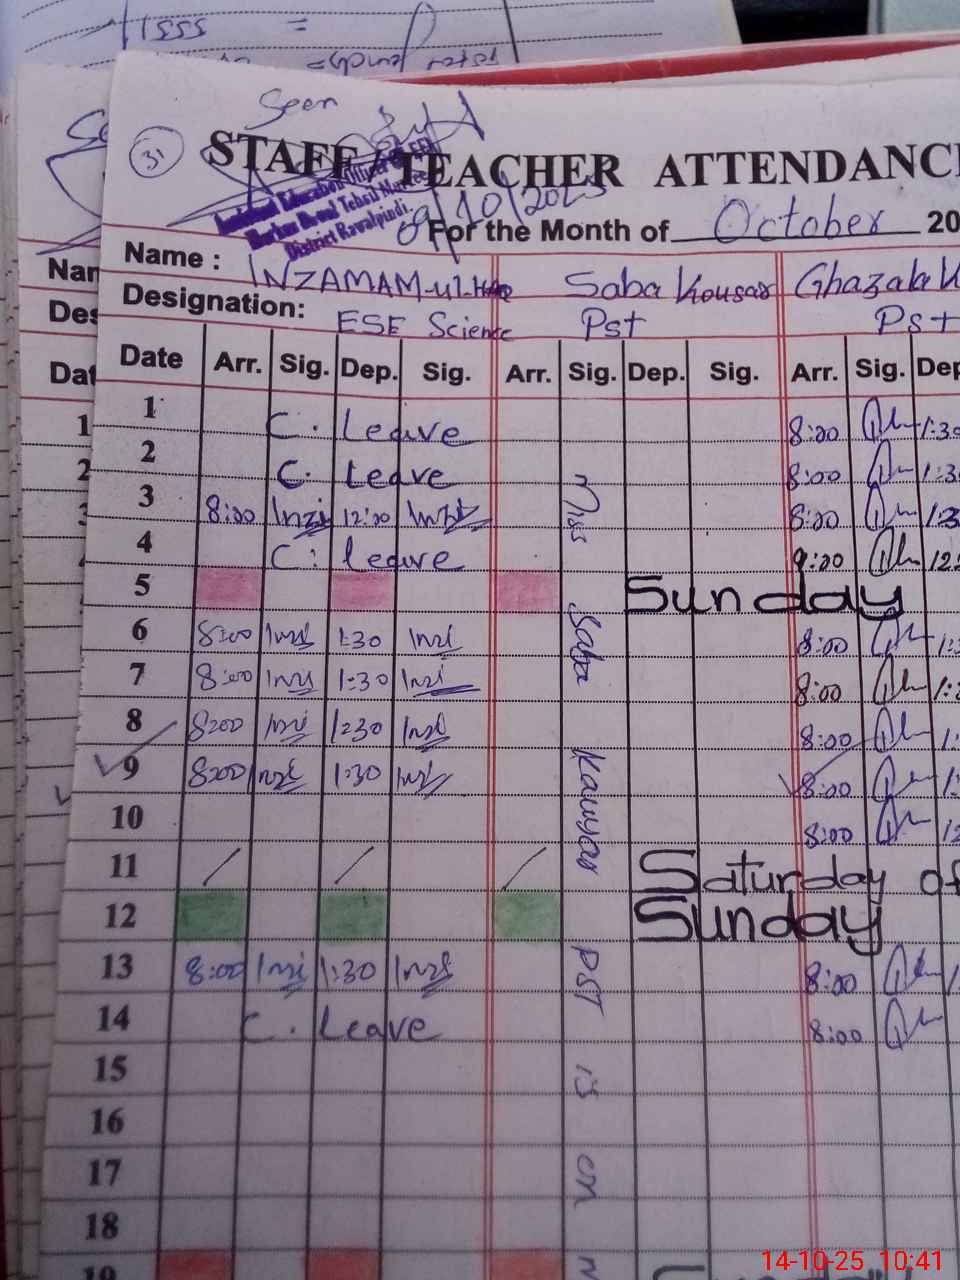 Seen
31
STAFF / TEACHER ATTENDANC
Assistant Education Officer
Markaz Tehsil Murree
District Rawalpindi.
09/10/2025
For the Month of October 20
Name : INZAMAM-ul-Haq Saba Kousar Ghazala K
Designation: ESE Science Pst Pst
Date Arr. Sig. Dep. Sig. Arr. Sig. Dep. Sig. Arr. Sig. Dep
1 C. Leave 8:00 1:30
2 C. Leave 8:00 1:3
3 8:00 Inzi 12:00 Inzi 8:00 1:3
4 C. Leave 9:00 12
5 Sunday
6 8:00 Inzi 1:30 Inzi 8:00 1:
7 8:00 Inzi 1:30 Inzi 8:00 1:
8 8:00 Inzi 1:30 Inzi 8:00 1:
9 8:00 Inzi 1:30 Inzi 8:00 1:
10 8:00 12
11 Saturday of
12 Sunday
13 8:00 Inzi 1:30 Inzi 8:00 1
14 C. Leave 8:00
15
16
17
18
19
Miss Saba Kousar PST is on
Nar
Des
Dat
1
2
3
14-10-25 10:41